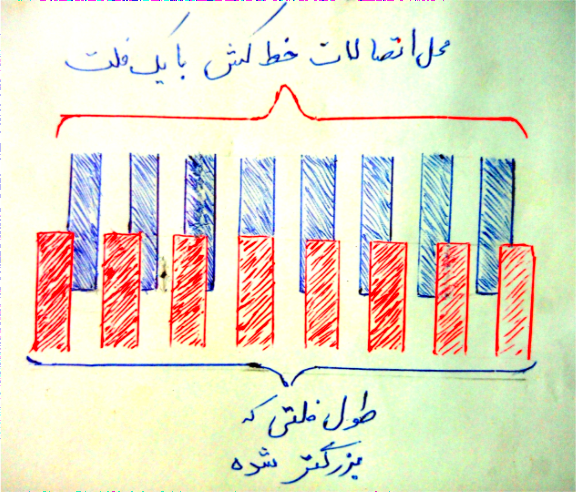 محل اتصالات خط کش با یک فلت
طول فلتی که
بزرگتر شده